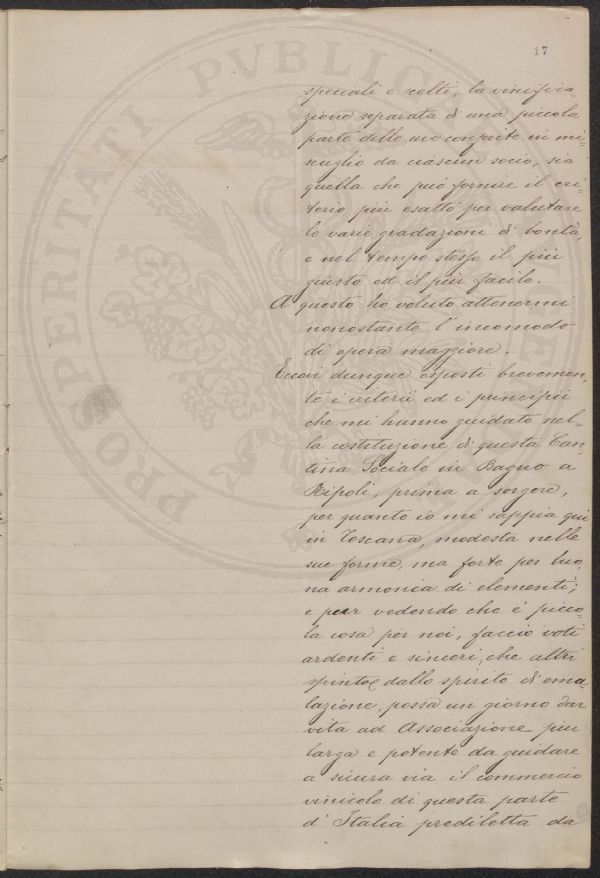 17
speciali e scelti, la vinifica-
zione separata di una piccola
parte delle uve conferite in mi-
scuglio da ciascun socio, sia
quella che può fornire il cri-
terio più esatto per valutare
le varie gradazioni di bontà,
e nel tempo stesso il più
giusto ed il più facile.
A questo ho voluto attenermi
nonostante l'incomodo
di opera maggiore.
Eccovi dunque esposti brevemen-
te i criterii ed i principii
che mi hanno guidato nel-
la costituzione di questa Can-
tina Sociale in Bagno a
Ripoli, prima a sorgere,
per quanto io mi sappia qui
in Toscana, modesta nelle
sue forme, ma forte per buo-
na armonia di elementi;
e pur vedendo che è picco-
la cosa per noi, faccio voti
ardenti e sinceri, che altri
spinto dallo spirito d'emu-
lazione, possa un giorno dar
vita ad Associazione più
larga e potente da guidare
a sicura via il commercio
vinicolo di questa parte
d'Italia prediletta da
PROSPERITATI PVBLICAE